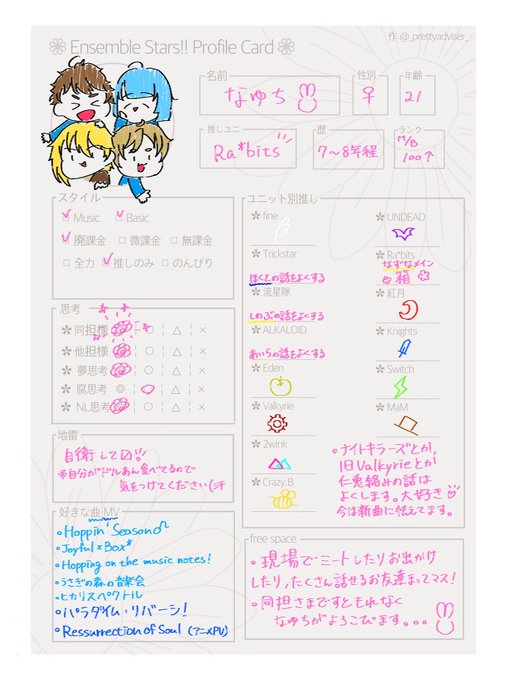 作:@_prettyadviser_
Ensemble Stars!! Profile Card
名前
なゆち
性別
♀
年齢
21
推しユニ
Ra*bits
歴
7〜8年程
ランク
M/B
100↑
スタイル
Music Basic
廃課金 微課金 無課金
全力 推しのみ のんびり
思考
同担様 ◎ ○ △ ×
他担様 ◎ ○ △ ×
夢思考 ◎ ○ △ ×
腐思考 ◎ ○ △ ×
NL思考 ◎ ○ △ ×
地雷
自衛しての!!!
気をつけてください
好きな曲・MV
・Hoppin' Season♪
・Joyful×Box*
・Hopping on the music notes!
・うさぎの森の音楽会
・ヒカリスペクトル
・パラダイム・リバーシ!
・Ressurrection of Soul (アニメPV)
ユニット別推し
fine
UNDEAD
Trickstar
ほくとの話をよくする
Ra*bits
なずなメイン
箱
流星隊
しのぶの話をよくする
紅月
ALKALOID
あいらの話をよくする
Knights
Eden
Switch
Valkyrie
MaM
2wink
Crazy:B
・ナイトキラーズとか、
旧Valkyrieとか
仁兎絡みの話は
よくします。大好き♡
今は新曲に怯えてます。
free space
・現場でミートしたりお出かけ
したり、たくさん話せるお友達まってマス!
・同担さまですともれなく
なゆちがよろこびます。。。